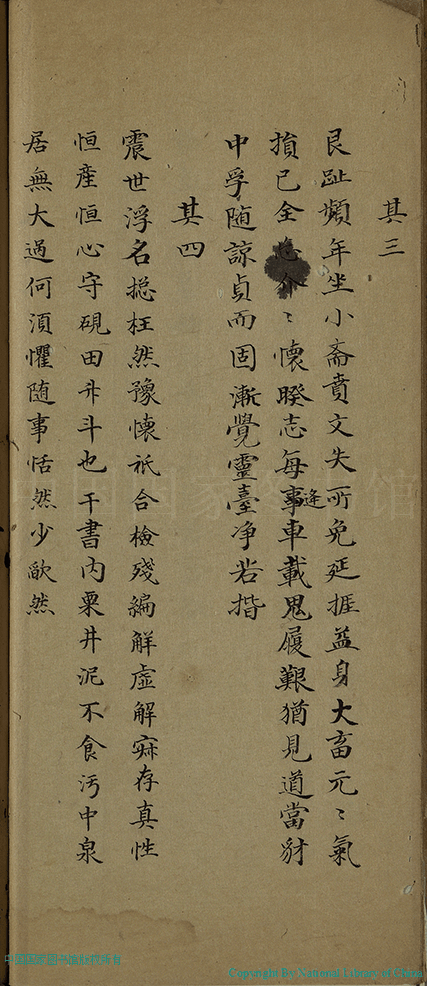 其三
艮趾頻年坐小齋賁文失所免延捱益身大畜元〻氣
損已全介〻懷睽志每事逢車載鬼履艱猶見道當豺
中孚随諒貞而固漸覺靈臺净若揩
其四
震世浮名搃枉然豫懷祇合檢殘編觧虛解寂存真性
恒産恒心守硯田升斗也干書内粟井泥不食汚中泉
居無大過何湏懼随事恬然少歉然
Copyright By National Library of China